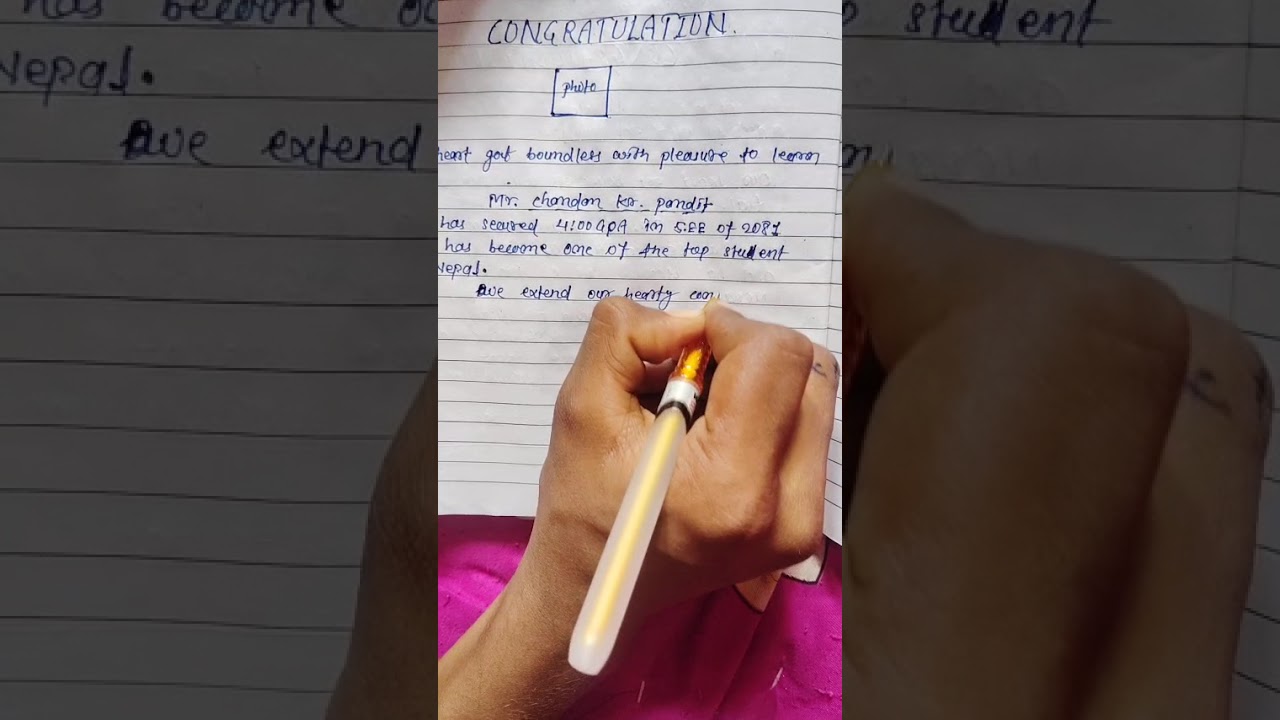 CONGRATULATION.
photo
heart got boundless with pleasure to learn
Mr. chandan Kr. pandit
has secured 4:00 GPA in S.EE of 2081
has become one of the top student
Nepal.
we extend our hearty con